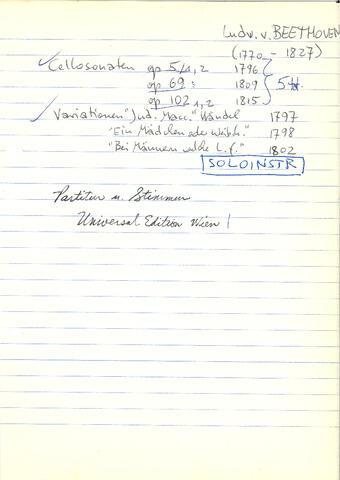 Ludv. v. BEETHOVEN
(1770 - 1827)
Cellosonaten op 5/1, 2 1796
op 69 1809 5
op 102 1, 2 1815
Variationen "Jud. Macc." Händel 1797
"Ein Mädchen oder Weibch." 1798
"Bei Männern welche L. f." 1802
SOLOINSTR
Partitur u. Stimmen
Universal Edition Wien